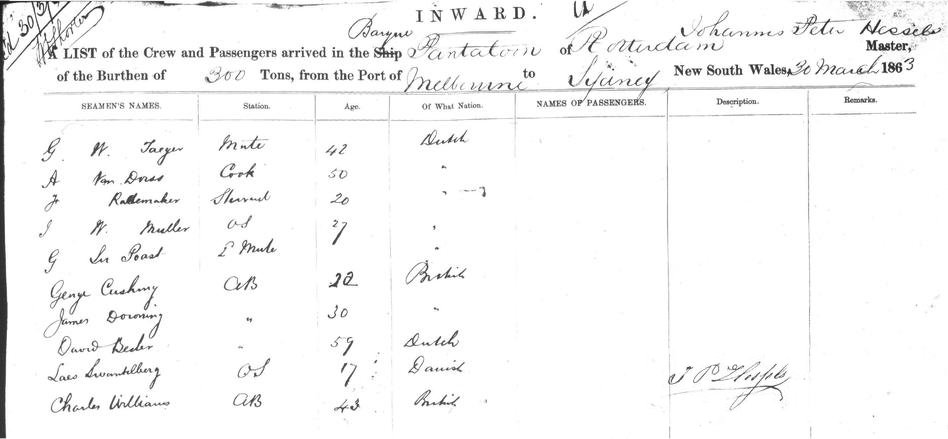 INWARD.
Barque
A LIST of the Crew and Passengers arrived in the Ship Pantaloon of Rotterdam Johannes Peter Hessels Master,
of the Burthen of 300 Tons, from the Port of Melbourne to Sydney New South Wales, 30 March 1863
SEAMEN'S NAMES. Station. Age. Of What Nation. NAMES OF PASSENGERS. Description. Remarks.
G W. Jaeger Mate 42 Dutch
A Van Dorss Cook 50 "
Rademaker Steward 20 "
J W. Muller OS 27 "
G 2 Mate "
George Cushing AB 22 British
James Downing " 30 "
David " 59 Dutch
OS 17 Danish
Charles Williams AB 43 British